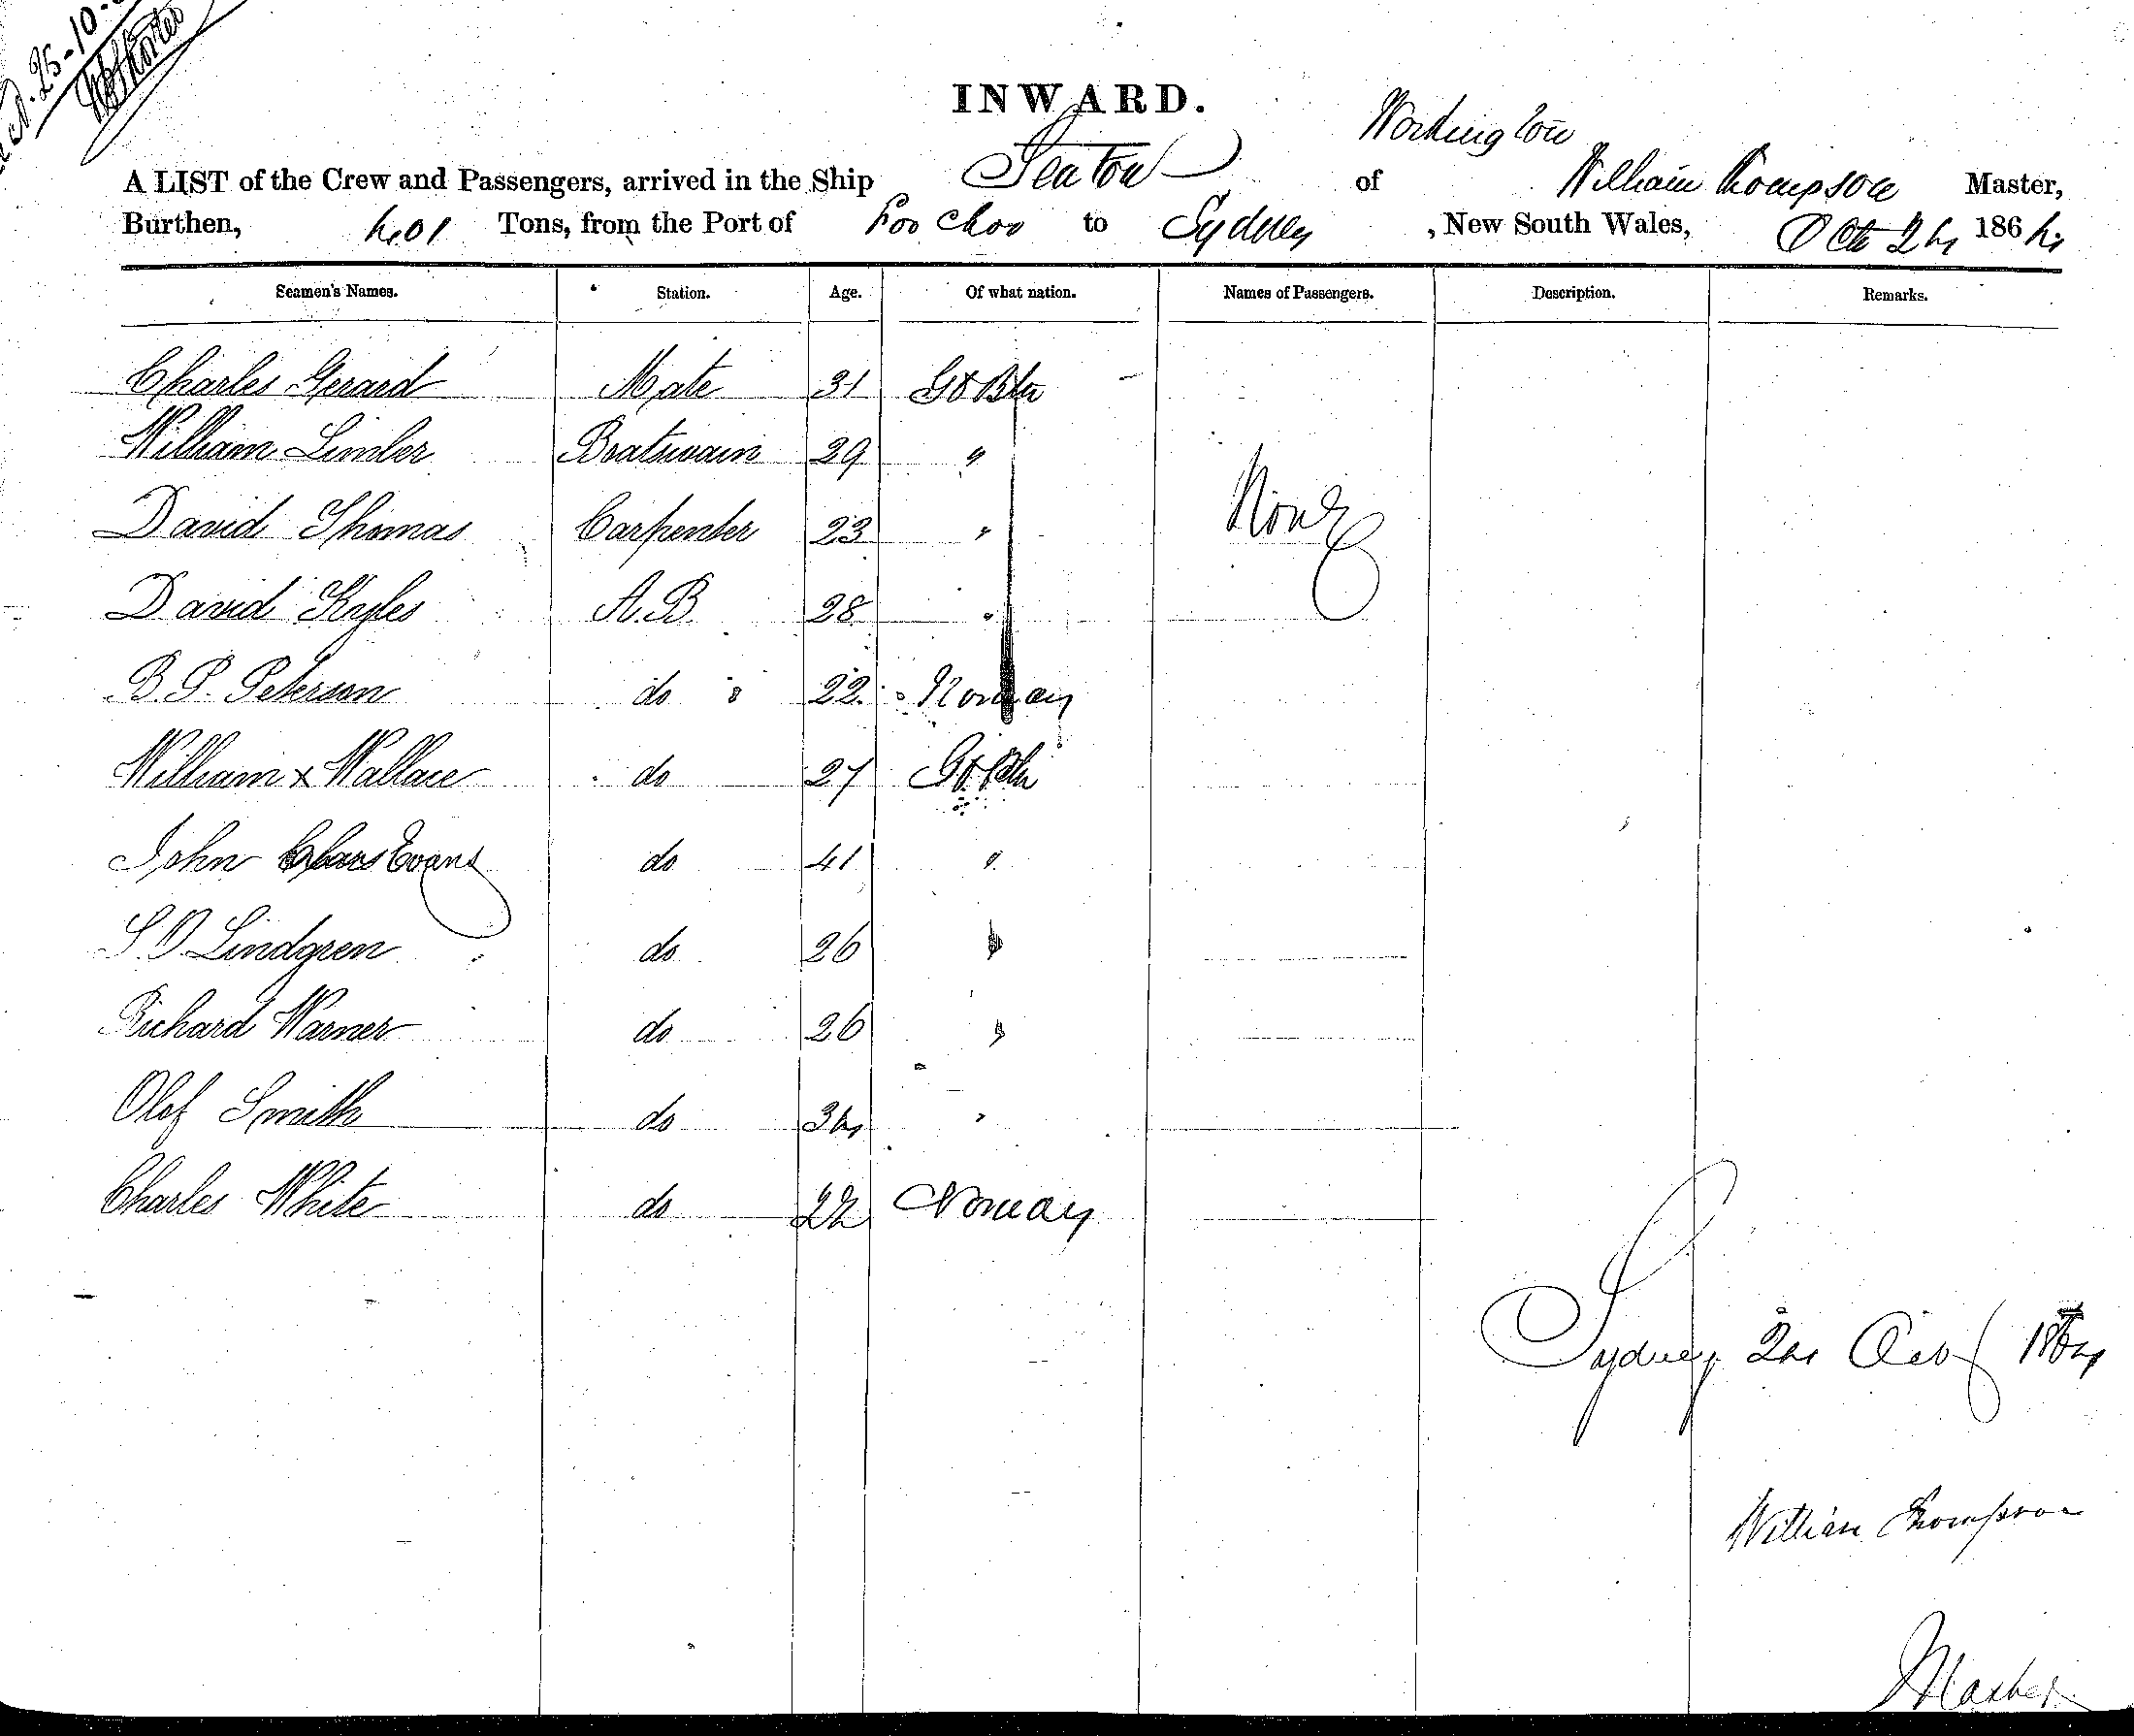 25-10-
INWARD.
Workington
A LIST of the Crew and Passengers, arrived in the Ship Seaton of William Thompson Master,
Burthen, 401 Tons, from the Port of Foo Choo to Sydney , New South Wales, Oct 24 1864
Seamen's Names. Station. Age. Of what nation. Names of Passengers. Description. Remarks.
Charles Gerard Mate 31 Gt Btn
William Limber Boatswain 29 "
David Thomas Carpenter 23 " None
David Kyles A.B. 28 "
B. P. Peterson do 22 Norway
William x Wallace do 27 Gt Btn
John Evans do 41 "
S O Lindgren do 26 "
Richard Warner do 26 "
Olof Smith do 34 "
Charles White do 22 Norway
Sydney 24 Oct 1864
William Thompson
Master